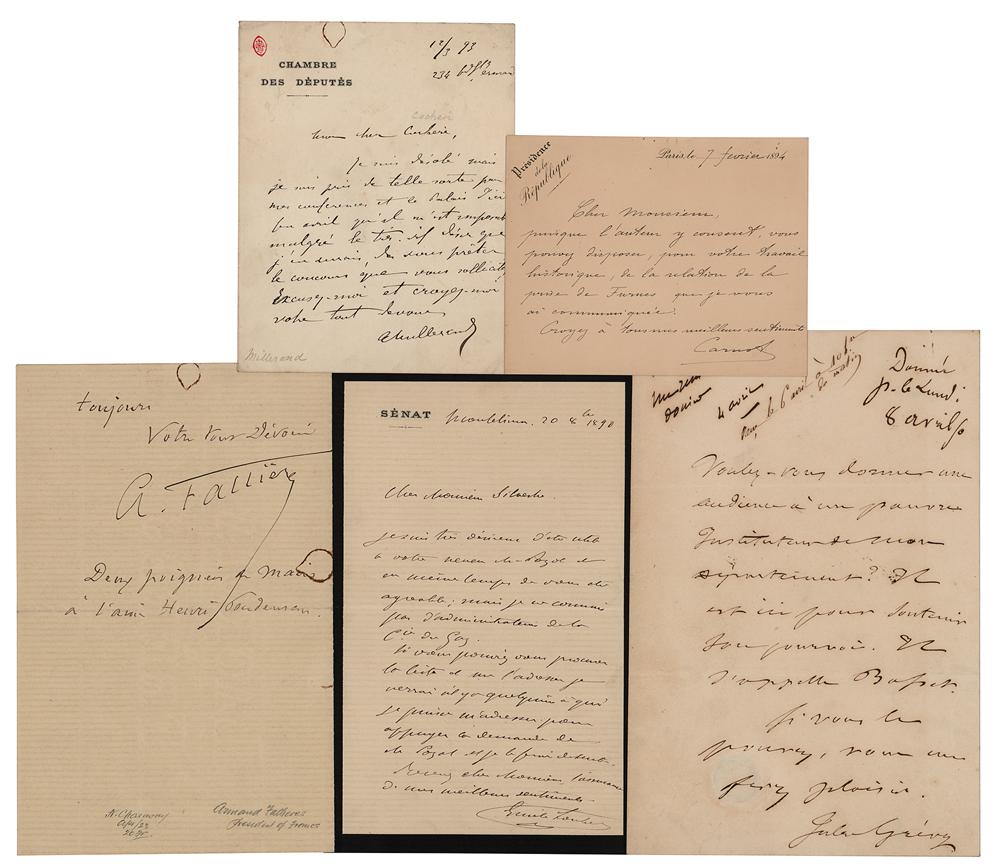 CHAMBRE
DES DÉPUTÉS
12/3 93
234
Cocheri
Mon cher Cocherie,
Je suis désolé mais
je suis pris de telle sorte par
mes conférences et le Palais d'ici
fin avril qu'il m'est impossible
malgré le très vif désir que
j'en aurais, de vous prêter
le concours que vous sollicitez
Excusez-moi et croyez-moi
votre tout dévoué
A Millerand
Millerand
Présidence
de la
République
Paris, le 7 février 1894
Cher Monsieur,
puisque l'auteur y consent, vous
pouvez disposer, pour votre travail
historique, de la relation de la
prise de Furnes que je vous
ai communiquée.
Croyez à tous mes meilleurs sentiments
Carnot
toujours
Votre tout Dévoué
A. Fallières
Deux poignées de mains
à l'ami Henri
N. Charavay
Armand Fallieres
President of France
SÉNAT
Montélimar, 20 8bre 1890
Cher Monsieur Silvestre
Je suis très désireux d'être utile
à votre neveu M. Pozol et
en même temps de vous être
agréable; mais je ne connais
pas d'administrateur de la
Cie du Gaz.
Si vous pouviez vous procurer
la liste et l'adresse je
verrai s'il y a quelqu'un à qui
je puisse m'adresser pour
appuyer la demande de
M. Pozol et je le ferai de suite.
Recevez cher Monsieur l'assurance
de mes meilleurs sentiments
Emile Loubet
4 avril
6 avril à 10h
du matin
Donné
p. le Lundi
8 avril
Voulez-vous donner une
audience à un pauvre
Instituteur de mon
département? Il
est ici pour soutenir
son pourvoi. Il
s'appelle Basset.
Si vous le
pouvez, vous me
ferez plaisir.
Jules Grévy